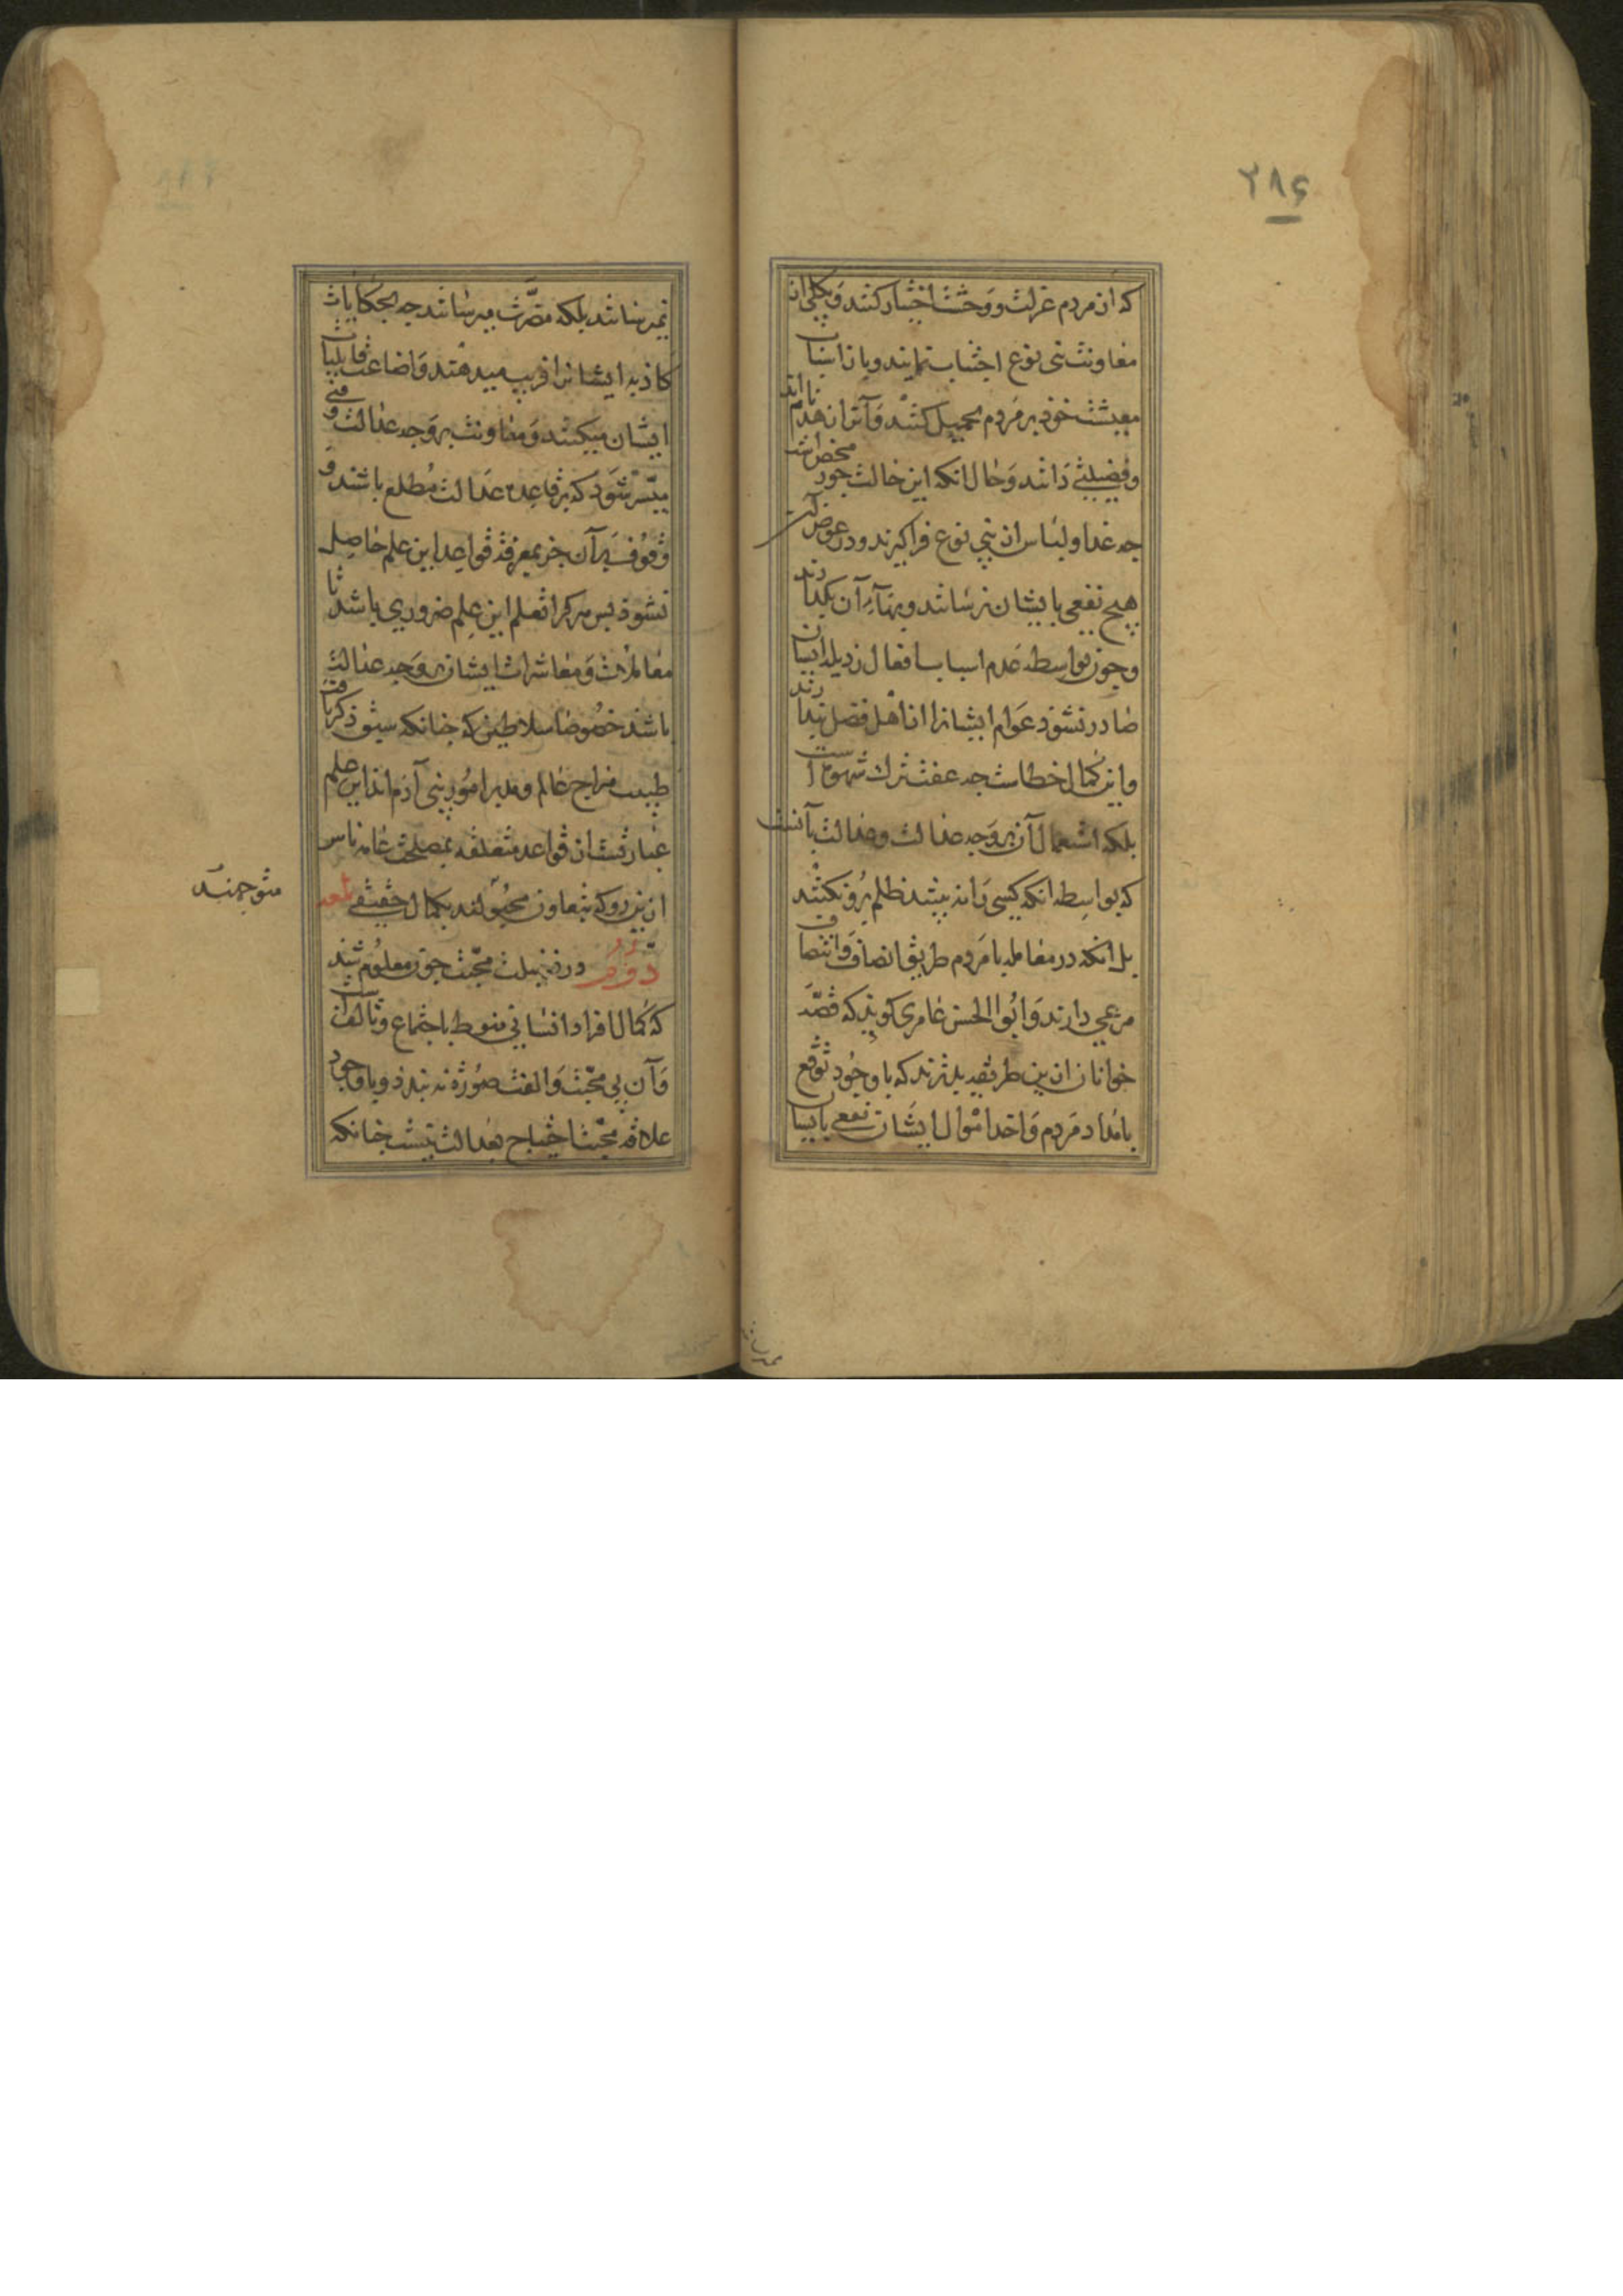 ۲۸۶
که از مردم عزلت و وحشت اختیار کنند و بکلی از
معاونت بنی نوع اجتناب نمایند و بار اسباب
معیشت خود بر مردم تحمیل کنند و آنرا زهد نام
و فضیلتی دانند و حال انکه این حالت جور محض است
چه غدا و لباس از بنی نوع فراکیرند و در عوض آن
هیچ نفعی بایشان نرسانند و بهآء آن نکدارند
و چون بواسطه عدم اسباب افعال رذیله از ایشان
صادر نشود عوام ایشانرا از اهل فضل پندارند
و این کمال خطاست چه عفت نه ترک شهوتست
بلکه استعمال آن بر وجه عدالت و عدالت بآن نیست
که بواسطه انکه کسی را نه بینند ظلم برو نکنند
بل انکه در معامله با مردم طریق انصاف و انتصاف
مرعی دارند و ابو الحسن عامری کوید که قصه
خوانان ازین طریقه بدترند که با وجود توقع
بامداد مردم و اخذ اموال ایشان نفعی بایشان
نمیرسانند بلکه مضرت میرسانند چه بحکایات
کاذبه ایشانرا فریب میدهند و اضاعت قابلیات
ایشان میکنند و معاونت بر وجه عدالت وقتی
میسر شود که بر قاعده عدالت مطلع باشند و
وقوف بر آن جز بمعرفة قواعد این علم حاصل
نشود پس هرکرا تعلم این علم ضروری باشد تا
معاملات و معاشرات ایشان بر وجه عدالت
باشد خصوصا سلاطین که چنانکه سبق ذکر یافت
طبیب مزاج عالم و مدبر امور بنی آدم اند این علم
عبارتست از قواعد متعلقه بمصلحت عامه ناس
ازین رو که بتعاون متوجهند بکمال حقیقی لمعه
دوم در فضیلت محبت چون معلوم شد
که کمال افراد انسانی منوط باجتماع و تالف است
و آن بی محبت و الفت صورة نه بندد و با وجود
علاقه محبت احتیاج بعدالت نیست چنانکه
متوجهند